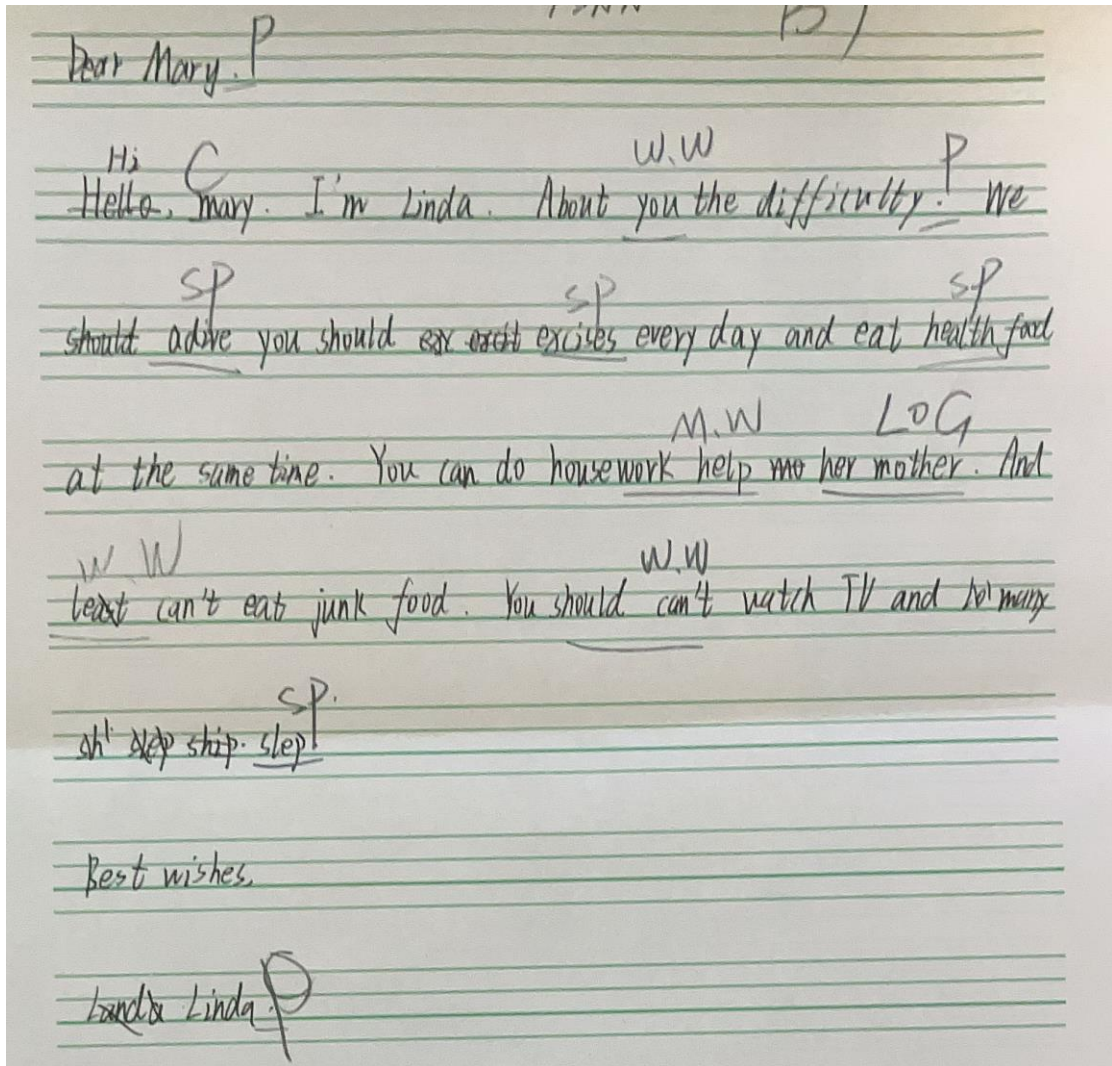 Dear Mary. P
Hi C W.W P
Hello, mary. I'm Linda. About you the difficulty. We
SP SP SP
should adive you should excises every day and eat health food
M.W LOG
at the same time. You can do housework help her mother. And
W.W W.W
least can't eat junk food. You should can't watch TV and to many
SP.
ship. slep
Best wishes,
Linda. P